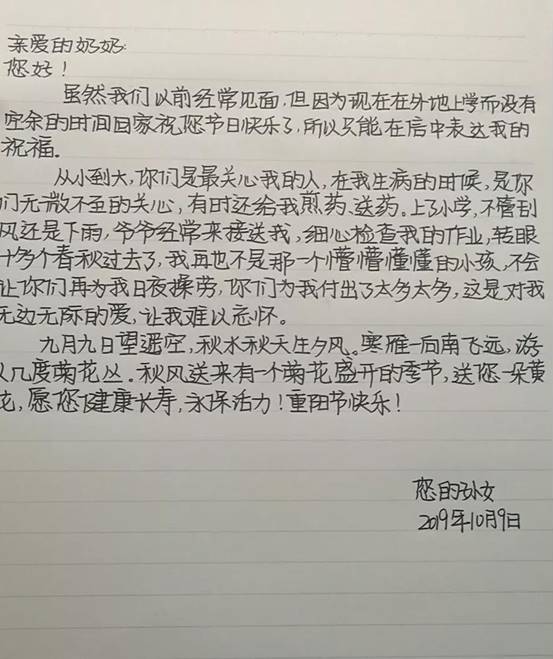 亲爱的奶奶:
您好!
虽然我们以前经常见面,但因为现在在外地上学而没有
空余的时间回家祝您节日快乐了,所以只能在信中表达我的
祝福。
从小到大,你们是最关心我的人,在我生病的时候,是你
们无微不至的关心,有时还给我煎药、送药。上了小学,不管刮
风还是下雨,爷爷经常来接送我,细心检查我的作业,转眼
十多个春秋过去了,我再也不是那一个懵懵懂懂的小孩,不会
让你们再为我日夜操劳,你们为我付出了太多太多,这是对我
无边无际的爱,让我难以忘怀。
九月九日望遥空,秋水秋天生夕风。寒雁一向南飞远,游
人几度菊花丛。秋风送来有一个菊花盛开的季节,送您一朵黄
花,愿您健康长寿,永保活力!重阳节快乐!
您的孙女
2019年10月9日